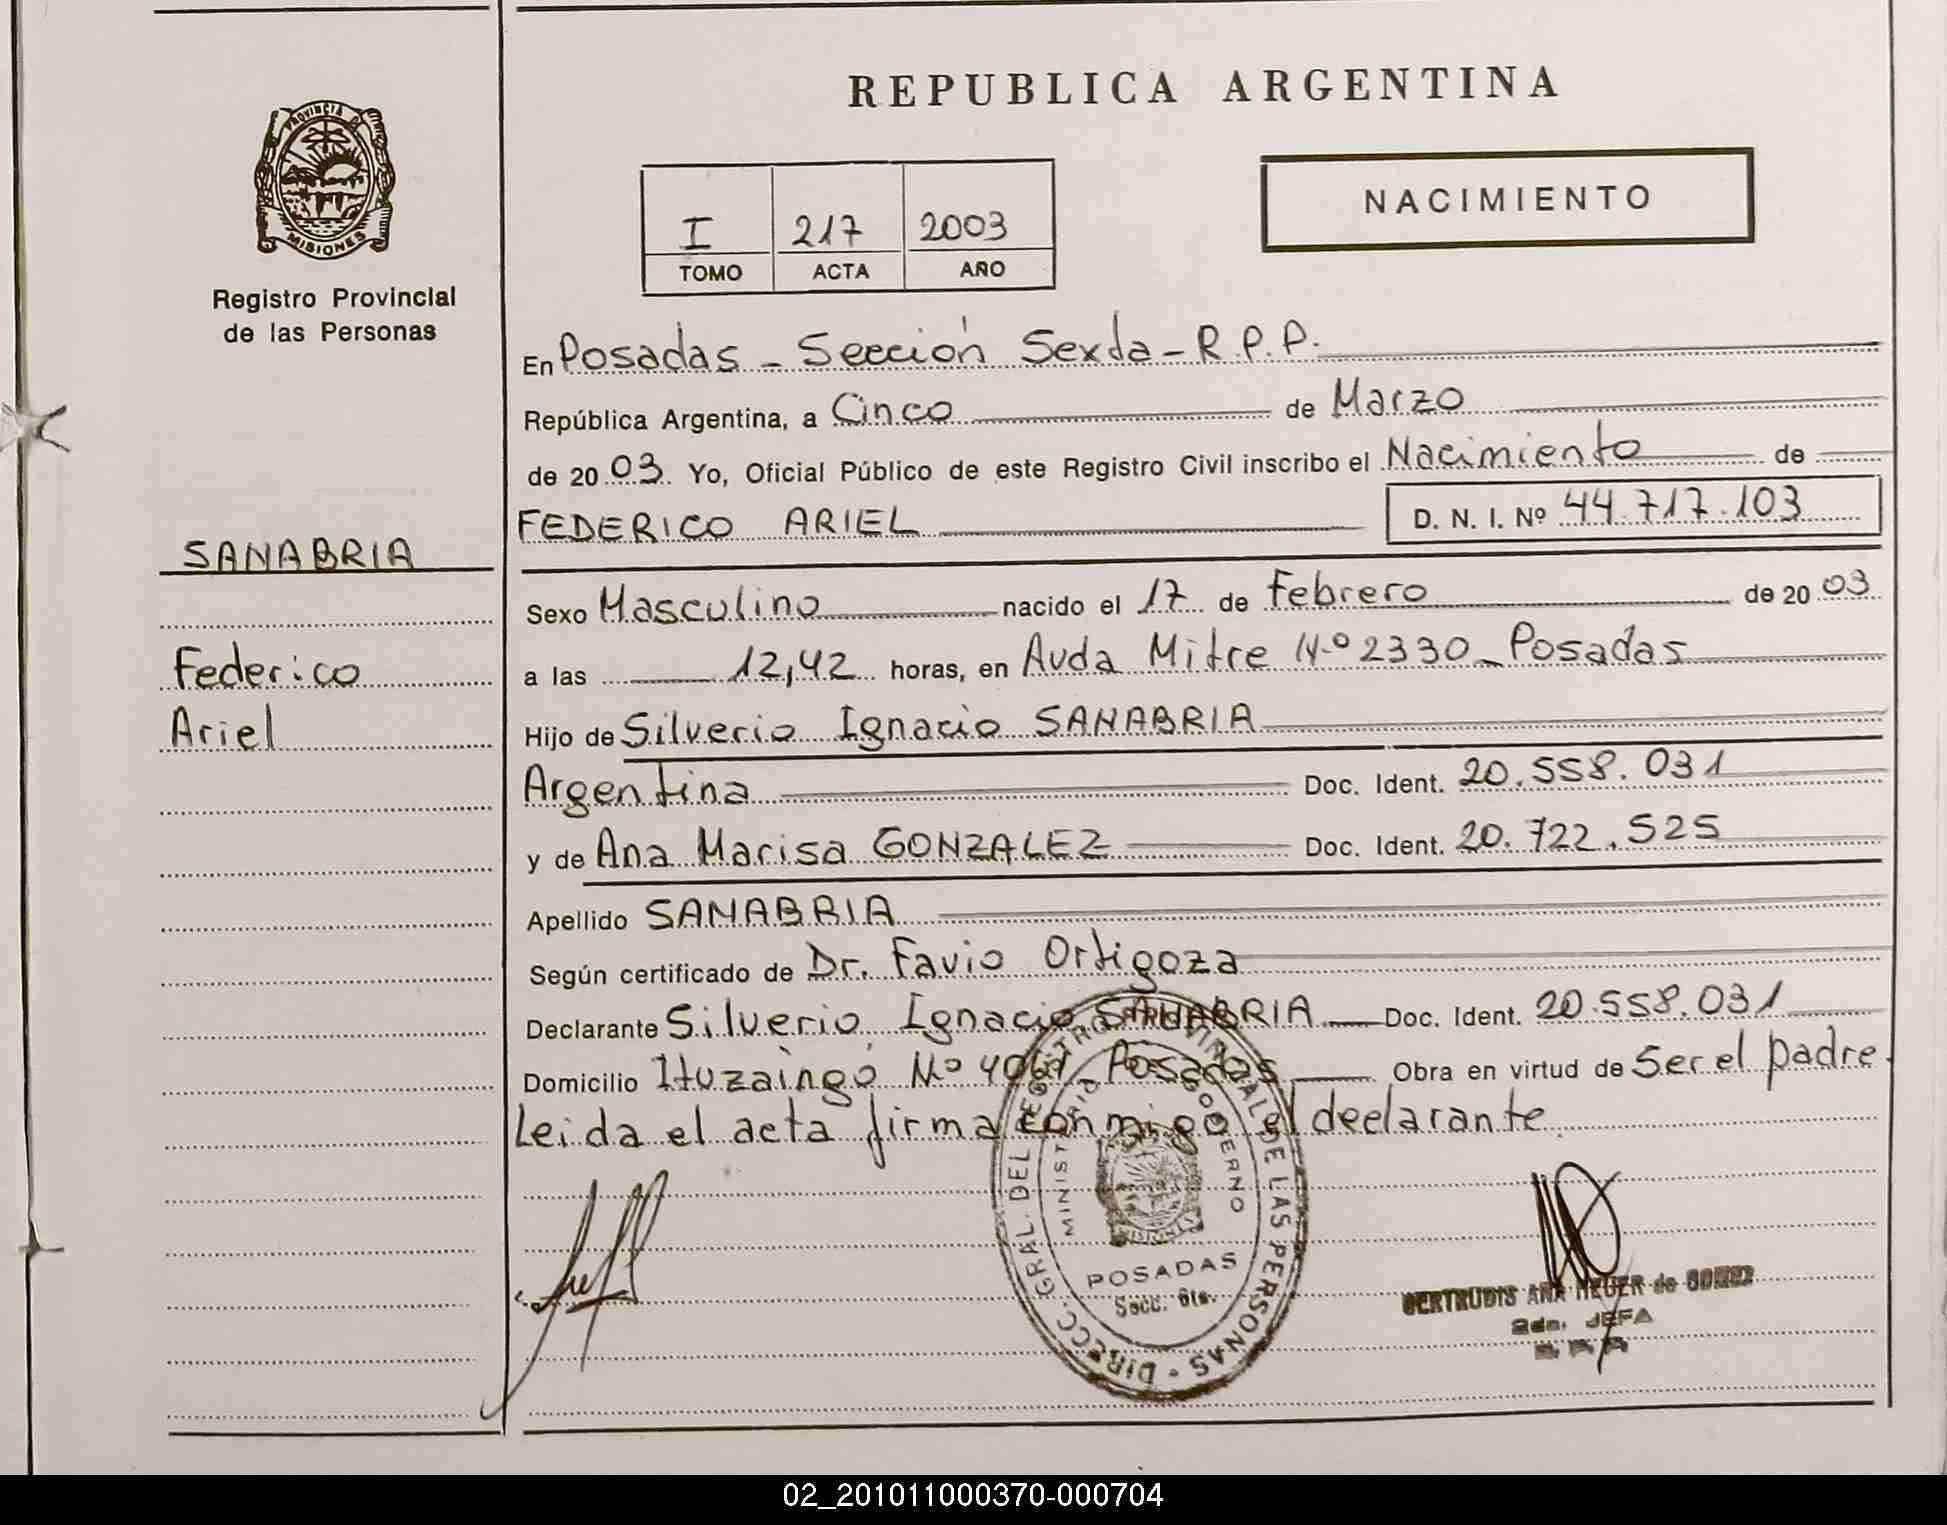 REPUBLICA ARGENTINA
PROVINCIA DE
MISIONES
Registro Provincial
de las Personas
SANABRIA
Federico
Ariel
NACIMIENTO
I 217 2003
TOMO ACTA AÑO
En Posadas - Sección Sexta - R.P.P.
República Argentina, a Cinco de Marzo
de 2003. Yo, Oficial Público de este Registro Civil inscribo el Nacimiento de
FEDERICO ARIEL D. N. I. Nº 44.717.103
Sexo Masculino nacido el 17 de Febrero de 2003
a las 12,42 horas, en Avda Mitre Nº 2330 - Posadas
Hijo de Silverio Ignacio SANABRIA
Argentina Doc. Ident. 20.558.031
y de Ana Marisa GONZALEZ Doc. Ident. 20.722.525
Apellido SANABRIA
Según certificado de Dr. Favio Ortigoza
Declarante Silverio Ignacio SANABRIA Doc. Ident. 20.558.031
Domicilio Ituzaingó Nº Posadas Obra en virtud de Ser el padre.
Leida el acta firma conmigo el declarante.
DIRECC. GRAL. DEL REGISTRO PROVINCIAL DE LAS PERSONAS
MINISTERIO GOBIERNO
MISIONES
POSADAS
Secc. 6ta.
GERTRUDIS ANA de GOMEZ
2da. JEFA
02_201011000370-000704